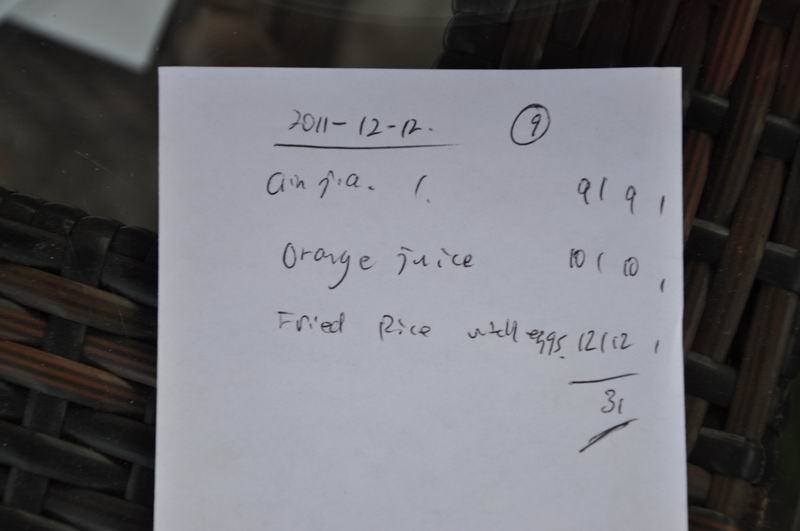 2011-12-12. 9
1. 9 1 9 1
Orange juice 10 1 10 1
Fried Rice with eggs. 12 1 12 1
31